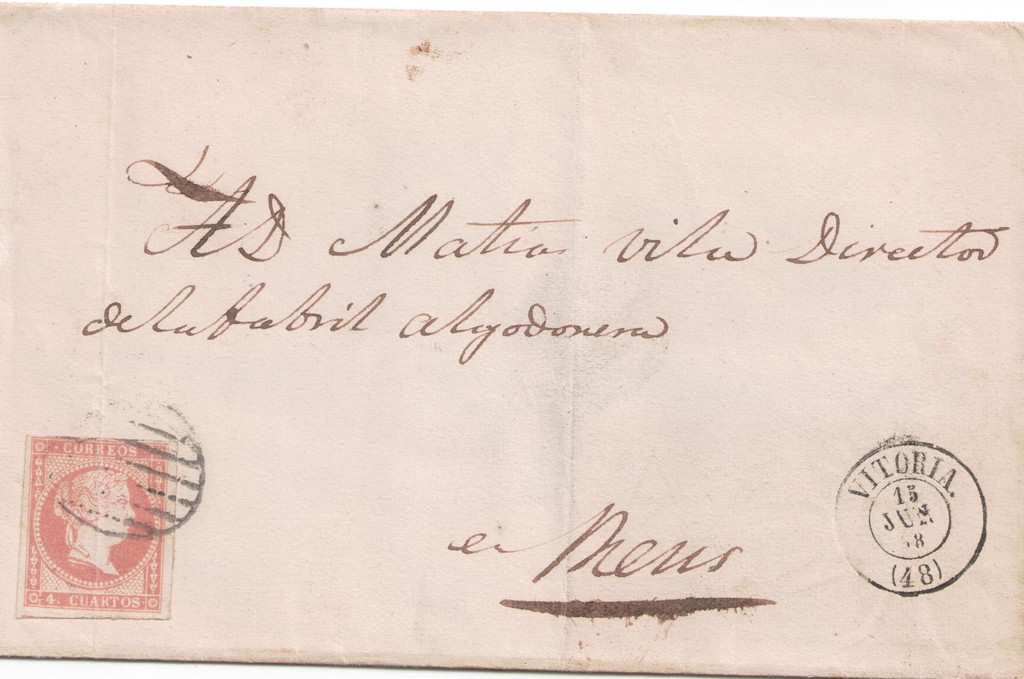 A D Matias vila Director
de la fabril algodonera
en Reus
CORREOS
4. CUARTOS
VITORIA.
15
JUN
58
(48)